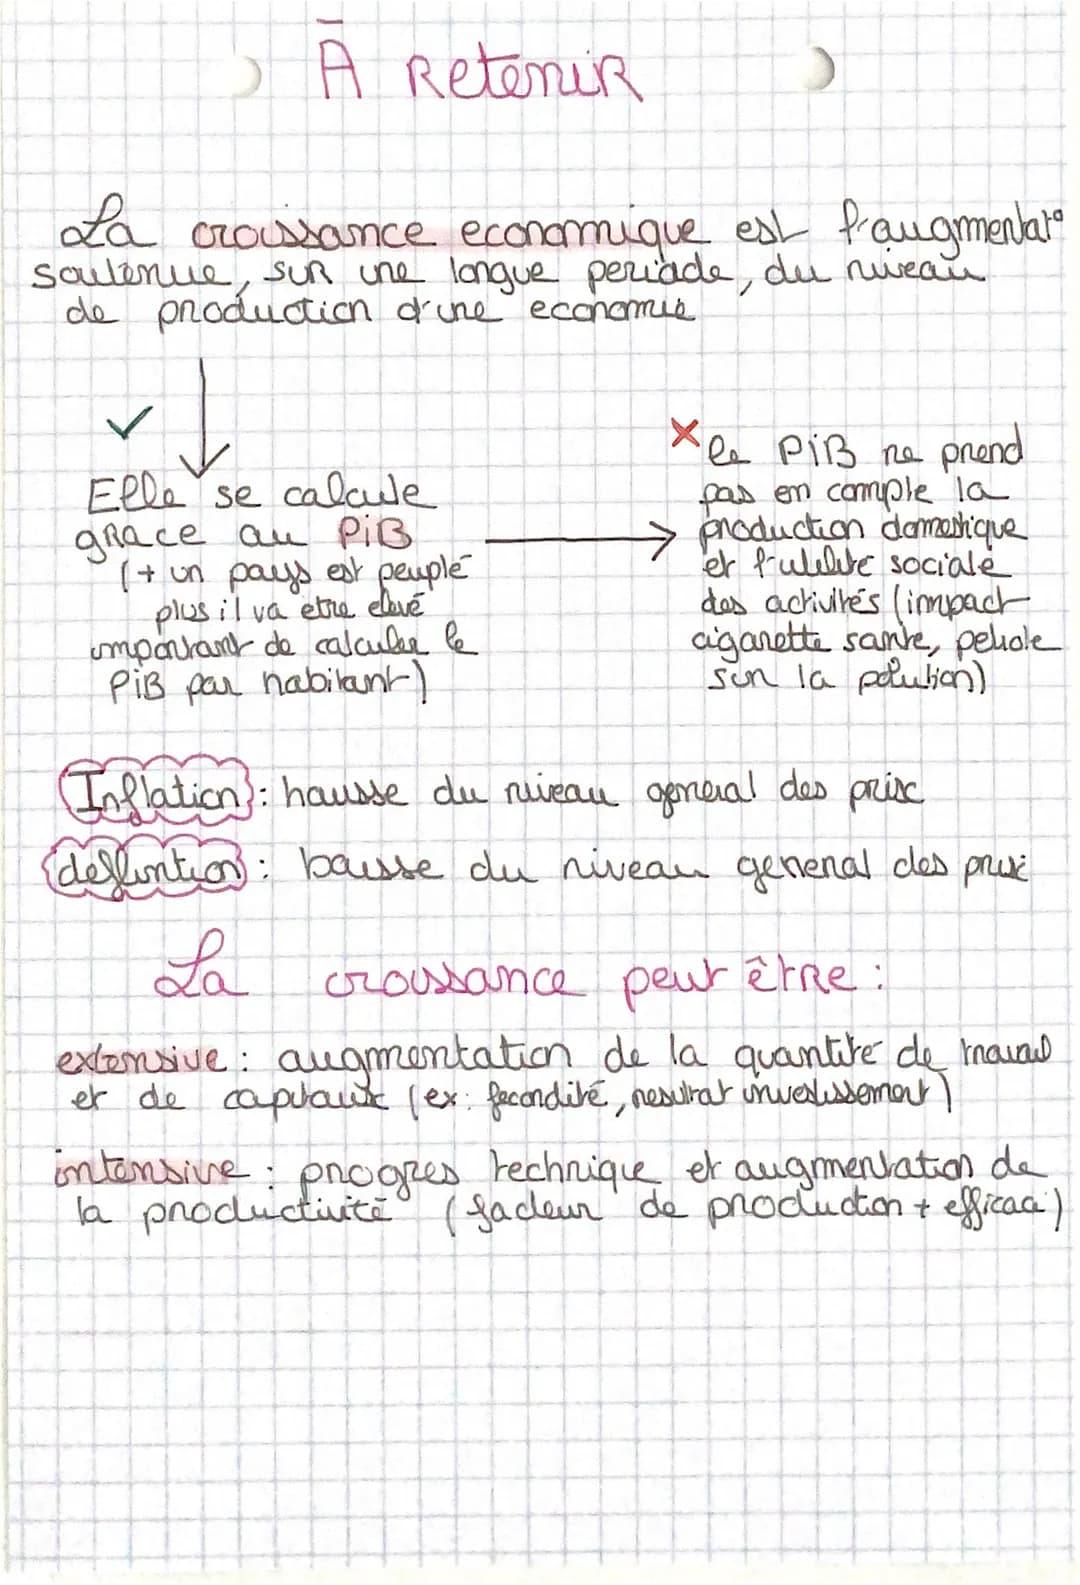 À Retenir
La croissance economique est l'augmentat°
soutenue, sur une longue periode, du niveau
de production d'une economie
Elle se calcule
grace au PiB
(+ un pays est peuplé
plus il va etre elevé
important de calculer le
PiB par habitant)
le PiB ne prend
pas en compte la
production domestique
et l'utilité sociale
des activités (impact
cigarette sante, petrole
sur la polution)
Inflation : hausse du niveau general des prix
deflation : baisse du niveau general des prix
La croissance peut être :
extensive : augmentation de la quantité de travail
et de capitaux (ex: fecondité, resultat investissement)
intensive : progres technique et augmentation de
la productivité (facteur de production + efficace)